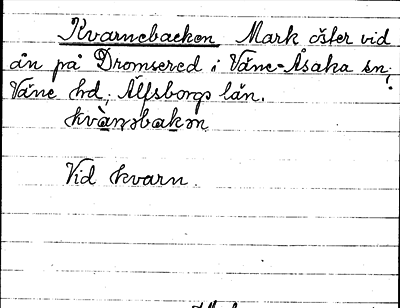 Kvarnebacken Mark öster vid
ån på Dromsered i Väne-Åsaka sn,
Väne hd, Älfsborgs län.
kvàṇəbakən
Vid kvarn.